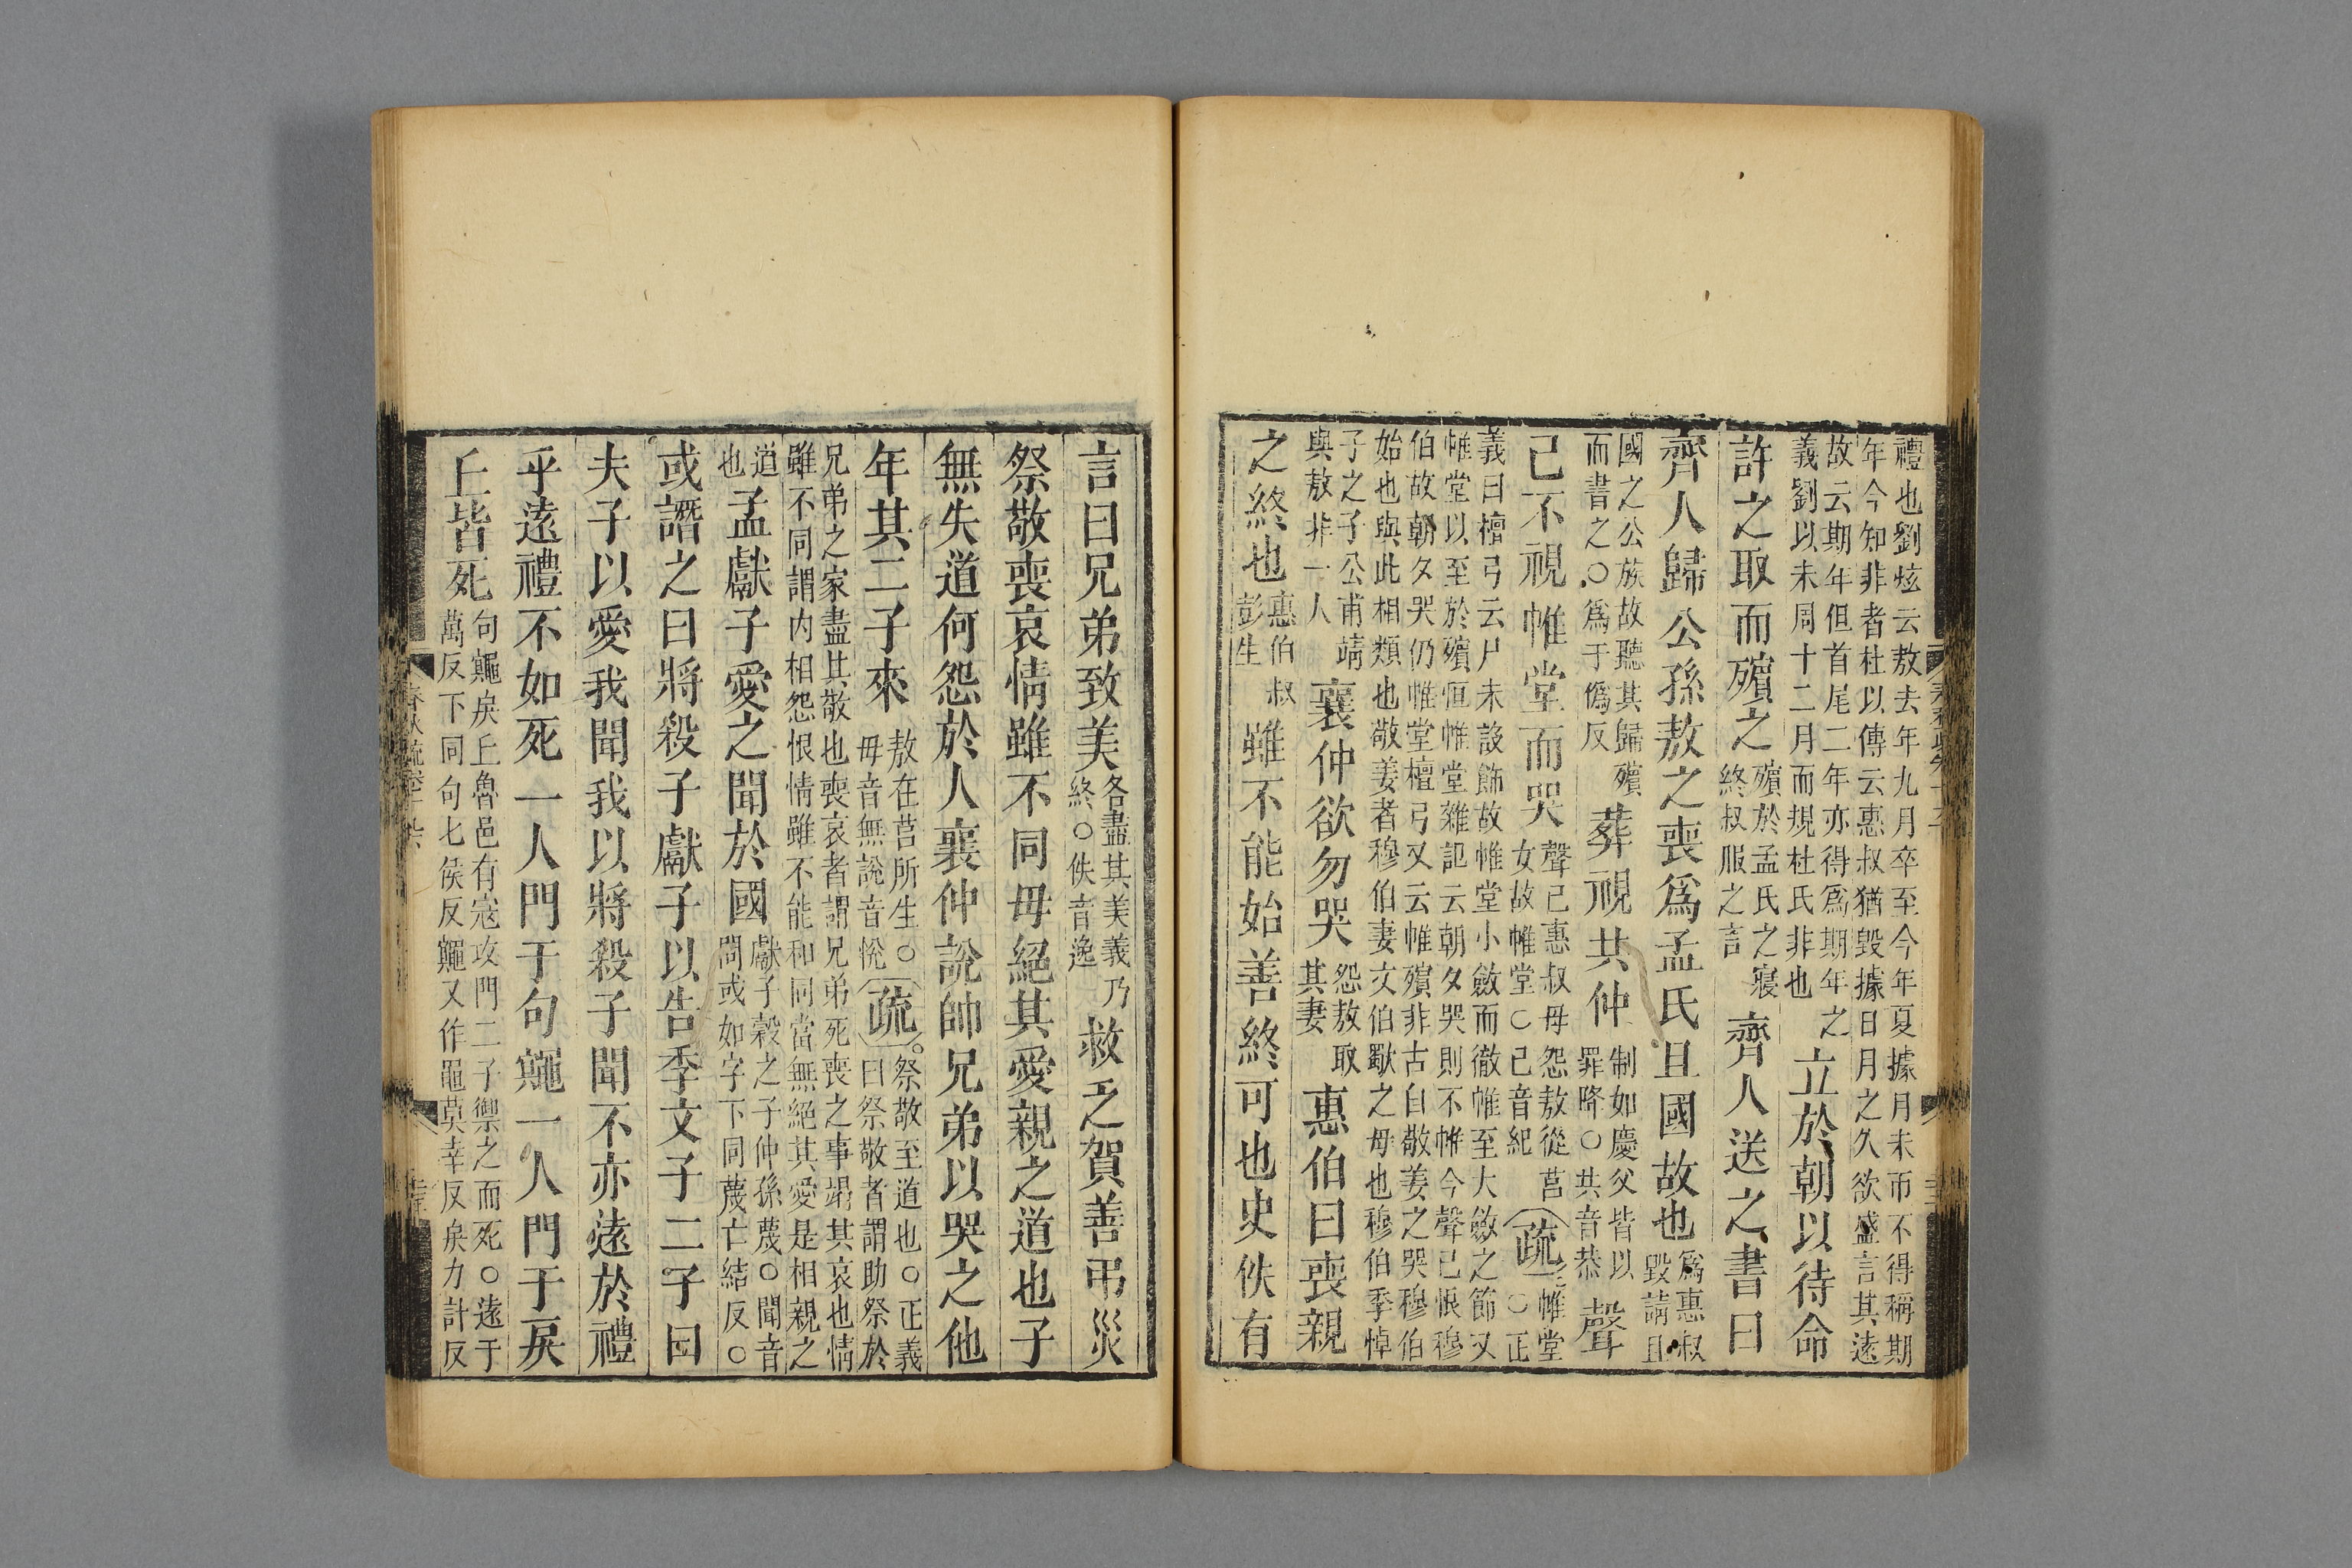 禮也劉炫云敖去年九月卒至今年夏據月未帀不得稱期
年今知非者杜以傳云惠叔猶毀據日月之久欲盛言其遠
故云期年但首尾二年亦得爲期年之
義劉以未周十二月而規杜氏非也
立於朝以待命
許之取而殯之
殯於孟氏之寢
終叔服之言
齊人送之書曰
齊人歸公孫敖之喪爲孟氏且國故也
爲惠叔
毀請且
國之公族故聽其歸殯
而書之○爲于僞反
葬視共仲
制如慶父皆以
罪降○共音恭
聲
己不視帷堂而哭
聲己惠叔母怨敖從莒
女故帷堂○己音紀
疏
帷堂
○正
義曰檀弓云尸未設飾故帷堂小斂而徹帷至大斂之節又
帷堂以至於殯恒帷堂雜記云朝夕哭則不帷今聲己恨穆
伯故朝夕哭仍帷堂檀弓又云帷殯非古自敬姜之哭穆伯
始也與此相類也敬姜者穆伯妻文伯歜之母也穆伯季悼
子之子公甫靖
與敖非一人
襄仲欲勿哭
怨敖取
其妻
惠伯曰喪親
之終也
惠伯叔
彭生
雖不能始善終可也史佚有
言曰兄弟致美
各盡其美義乃
終○佚音逸
救乏賀善弔災
祭敬喪哀情雖不同毋絕其愛親之道也子
無失道何怨於人襄仲說帥兄弟以哭之他
年其二子來
敖在莒所生○
毋音無說音悅
疏
祭敬至道也○正義
曰祭敬者謂助祭於
兄弟之家盡其敬也喪哀者謂兄弟死喪之事竭其哀也情
雖不同謂内相怨恨情雖不能和同當無絕其愛是相親之
道
也
孟獻子愛之聞於國
獻子穀之子仲孫蔑○聞音
問或如字下同蔑亡結反○
或譖之曰將殺子獻子以告季文子二子曰
夫子以愛我聞我以將殺子聞不亦遠於禮
乎遠禮不如死一人門于句鼆一人門于戾
丘皆死
句鼆戾丘魯邑有寇攻門二子禦之而死○遠于
萬反下同句七侯反鼆又作黽莫幸反戾力計反